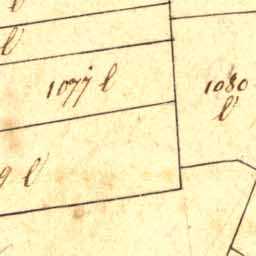 l
l
1077 l
1080
l
9 l